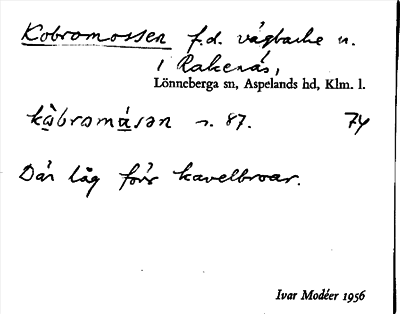 Kobromossen f.d. vägbacke n.
i Rakenäs,
Lönneberga sn, Aspelands hd, Klm. l.
kàbromåsən s. 87. 74
Där låg förr kavelbroar.
Ivar Modéer 1956